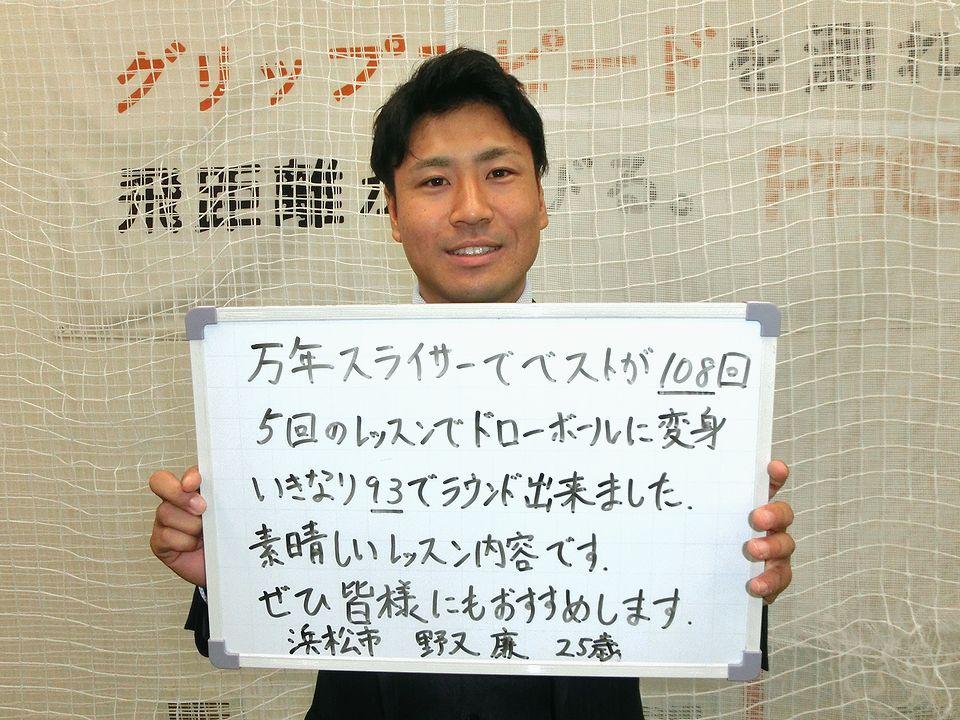 グリップスピードを測れ
飛距離が
げる。
万年スライサーでベストが108回
5回のレッスンでドローボールに変身
いきなり93でラウンド出来ました.
素晴しいレッスン内容です.
ぜひ皆様にもおすすめします.
浜松市 野又 廉 25歳